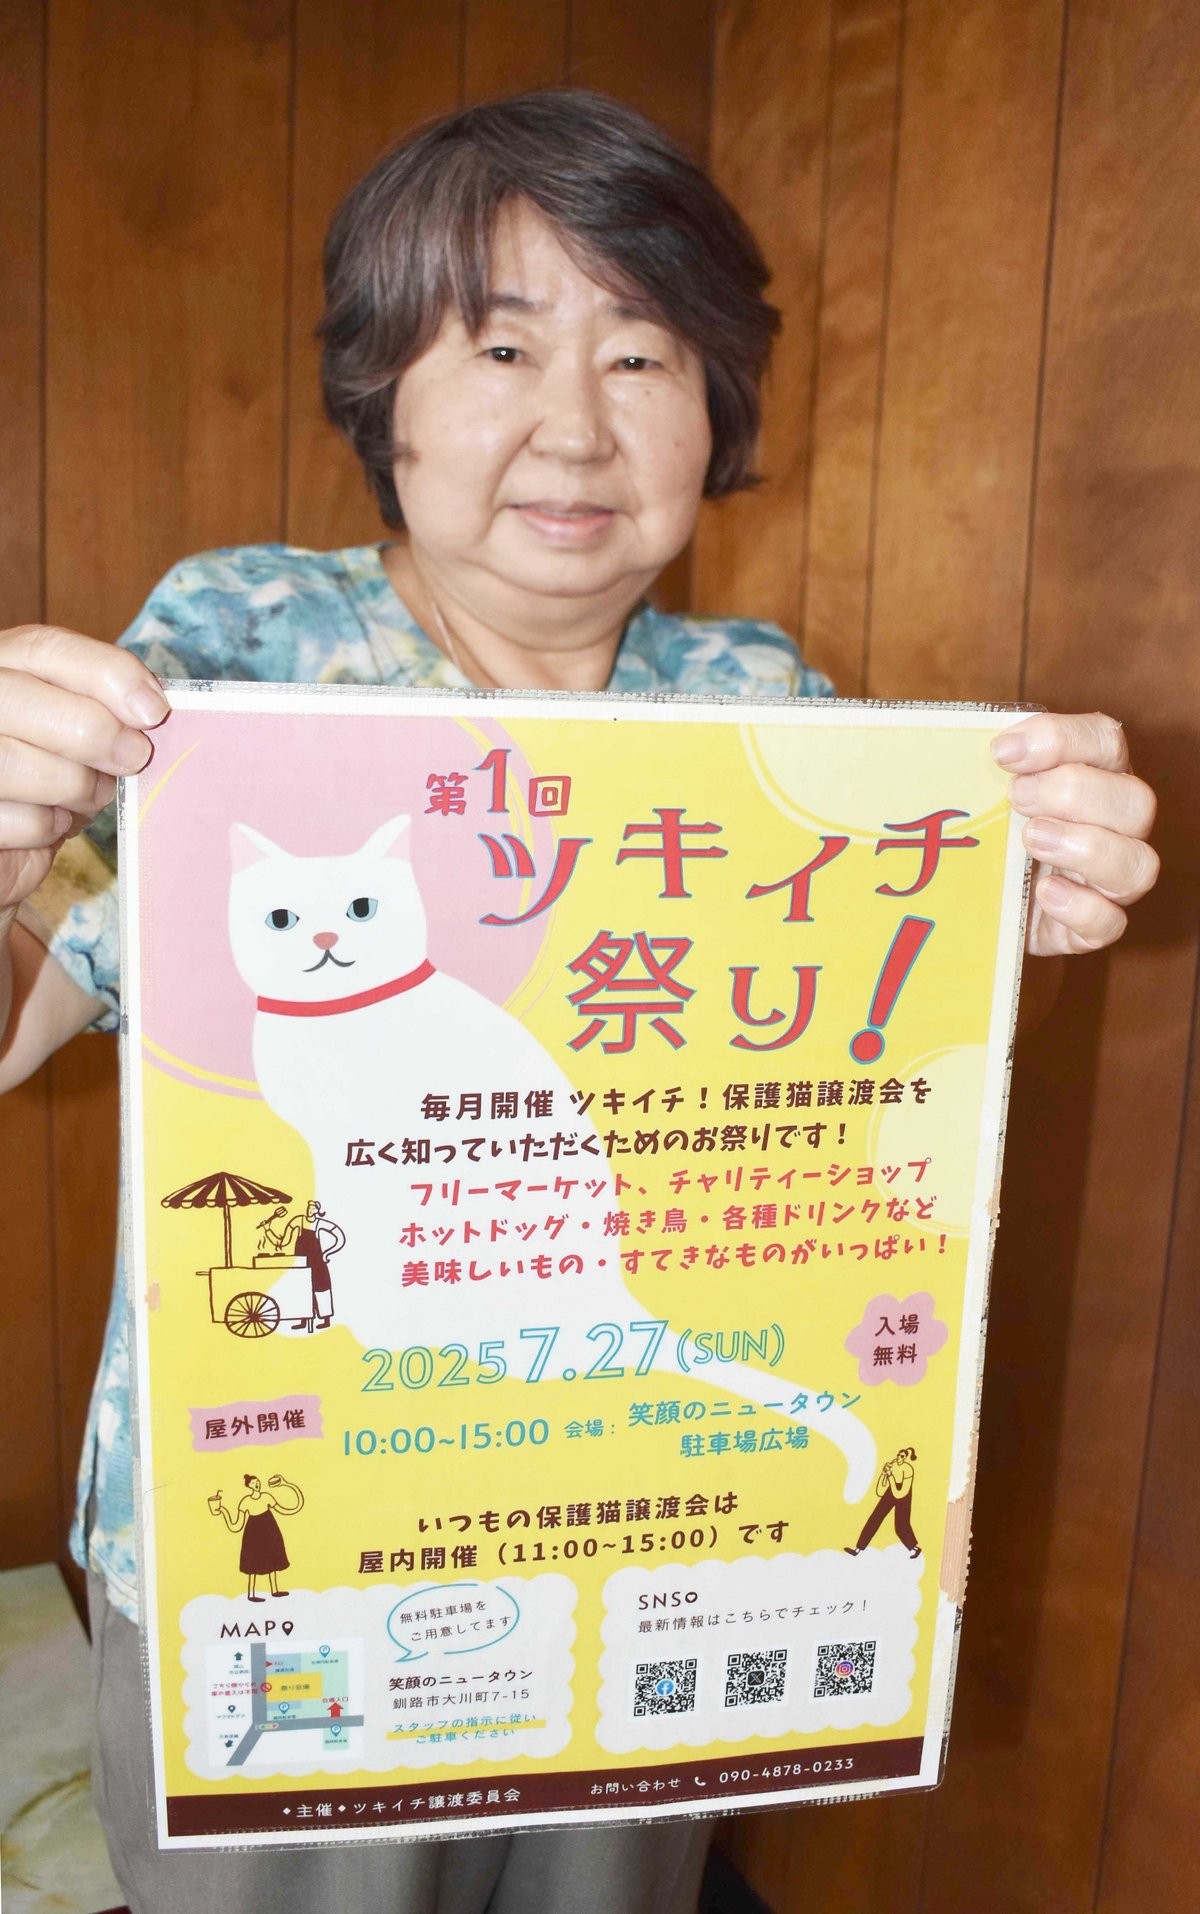 第1回
ツキイチ
祭り!
毎月開催 ツキイチ!保護猫譲渡会を
広く知っていただくためのお祭りです!
フリーマーケット、チャリティーショップ
ホットドッグ・焼き鳥・各種ドリンクなど
美味しいもの・すてきなものがいっぱい!
入場
無料
2025 7.27(SUN)
屋外開催
10:00~15:00 会場: 笑顔のニュータウン
駐車場広場
いつもの保護猫譲渡会は
屋内開催(11:00~15:00)です
MAP
無料駐車場を
ご用意してます
笑顔のニュータウン
釧路市大川町7-15
スタッフの指示に従い
ご駐車ください
祭り会場
SNS
最新情報はこちらでチェック!
◆主催◆ツキイチ譲渡委員会
お問い合わせ 090-4878-0233